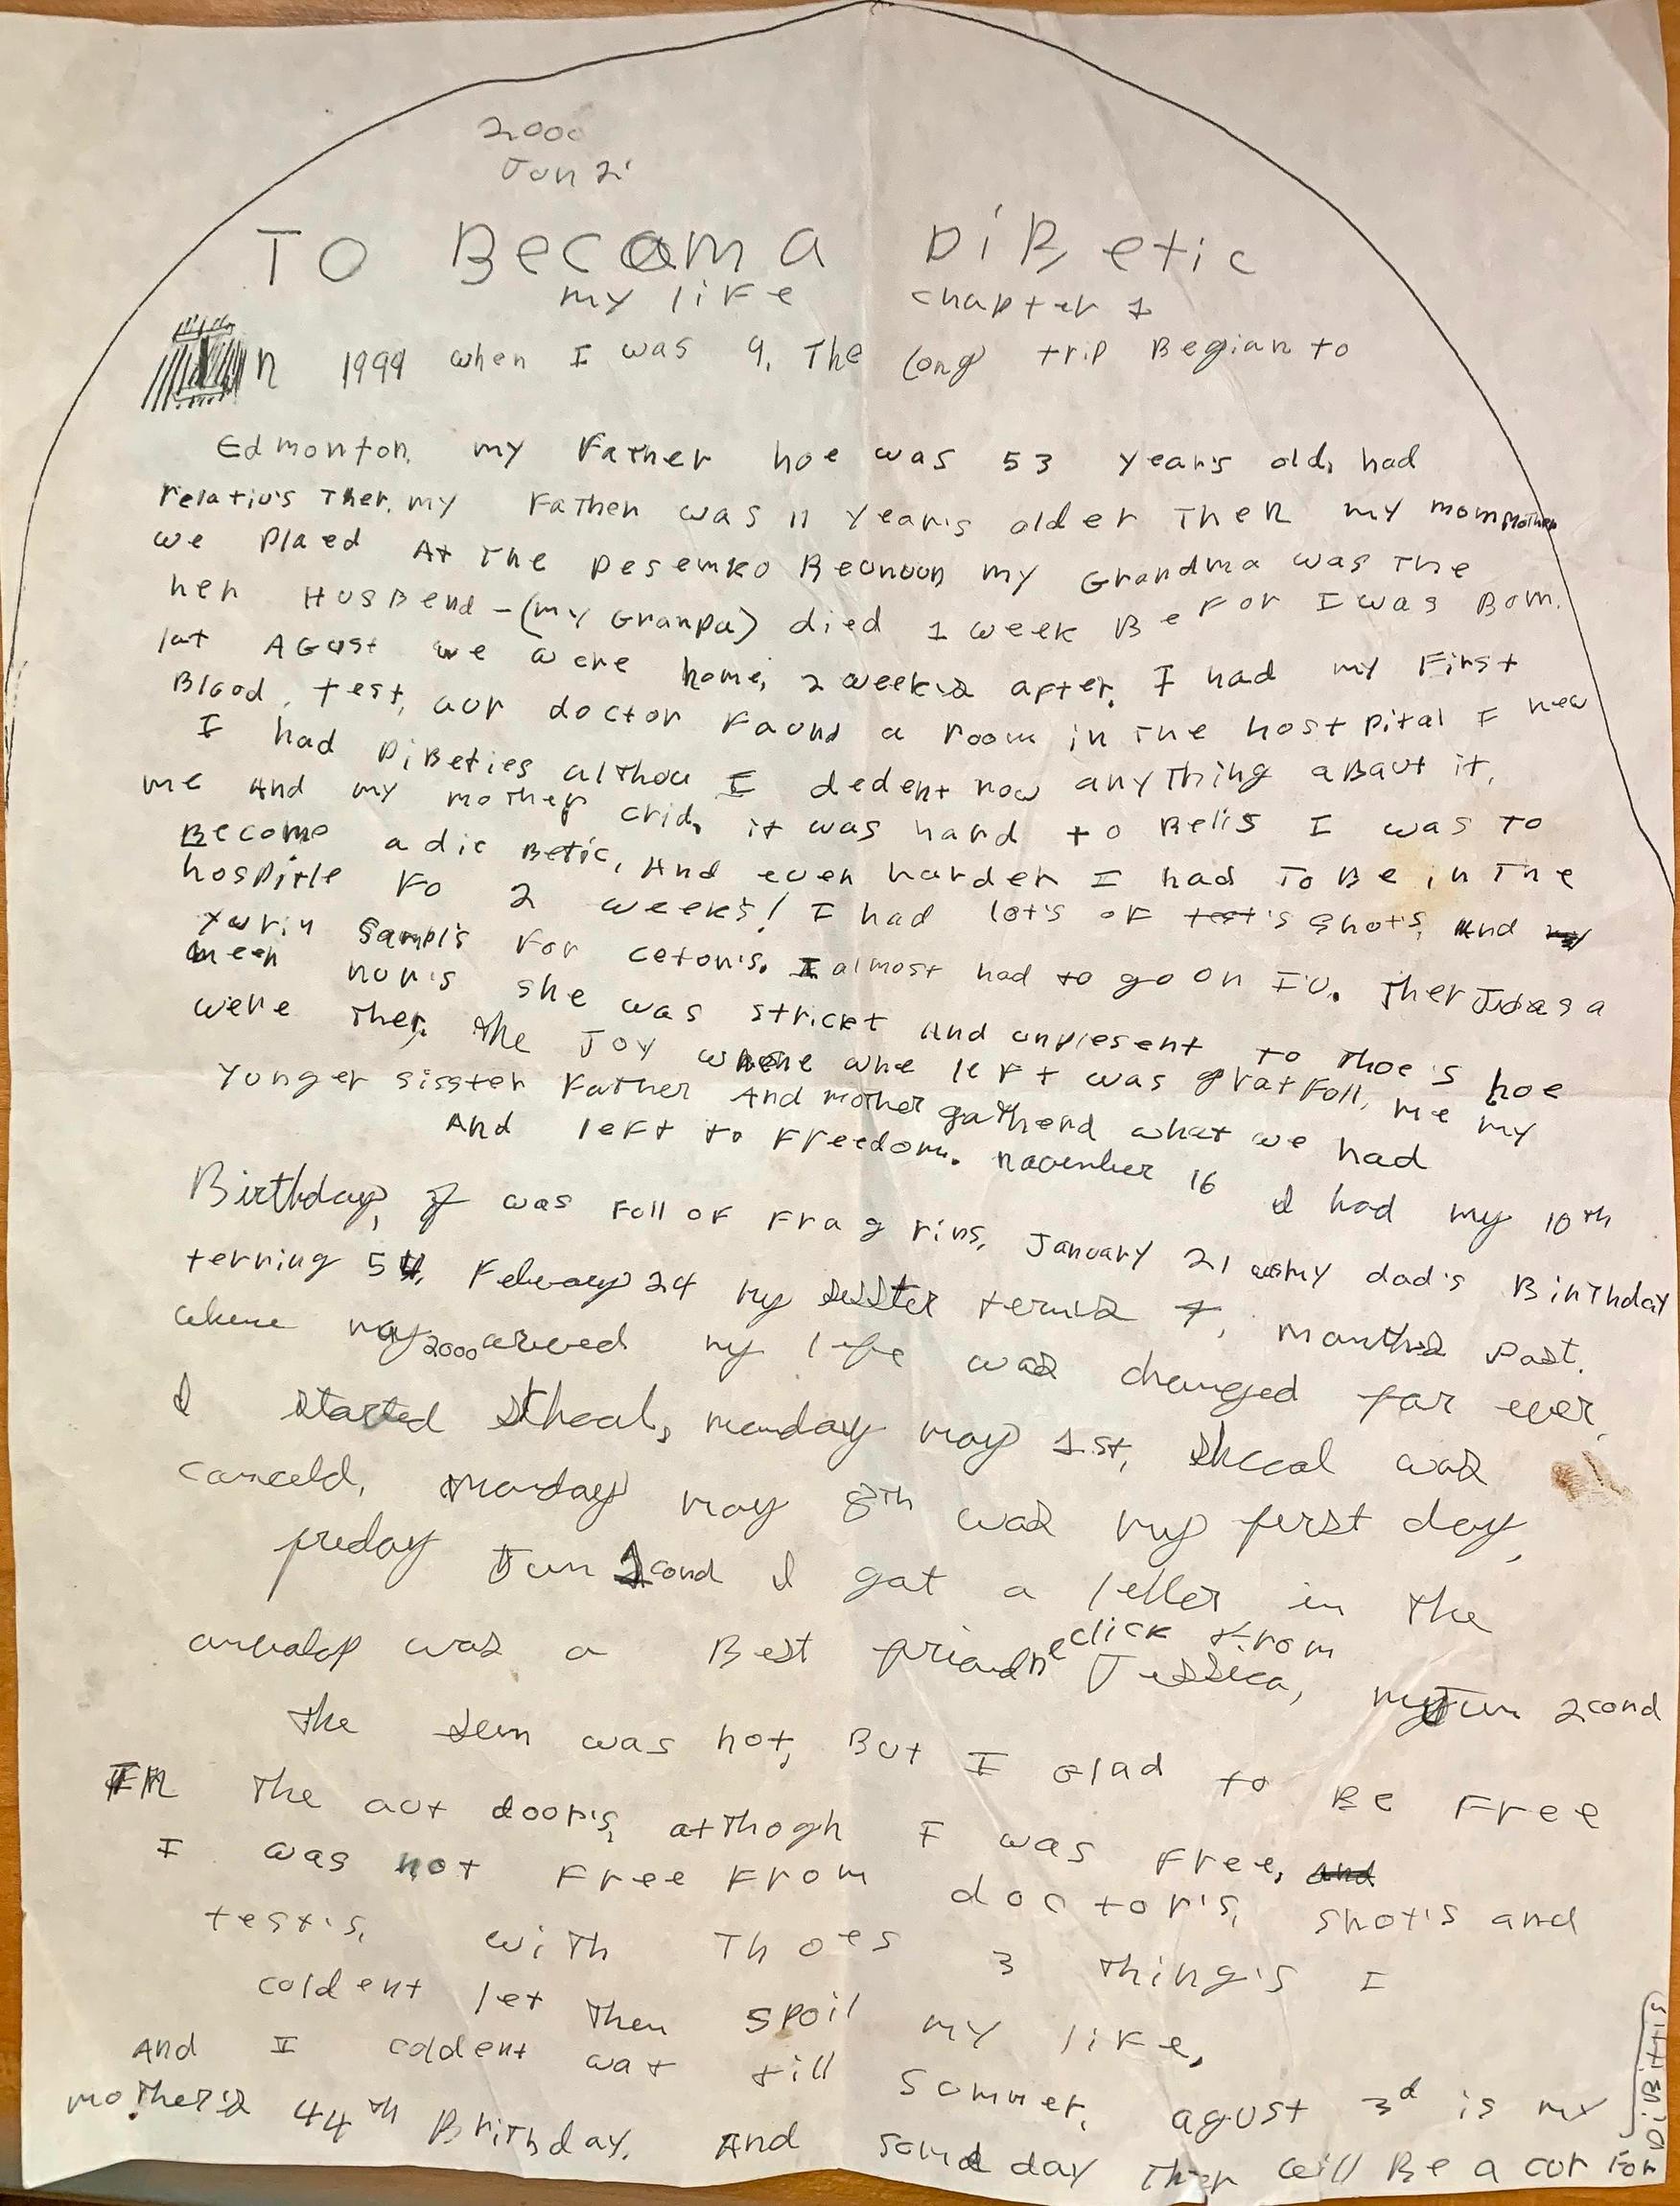 2000
Jun 2'
TO Becom a DiBetic
my life chapter 1
In 1999 when I was 9. The long trip Begian to
Edmonton. my Father hoe was 53 years old, had
relativ's Ther. my Father was 11 year's older Then my mom mother
we Plaed At The Desemko Reunuon my Grandma was The
her HusBend - (my Granpa) died 1 week BeFor I was Born.
lat AGust we were home, 2 weeks after. I had my First
Blood test, aur doctor Faund a room in The hostpital I new
I had DiBeties althou I dedent now anyThing aBaut it.
me And my mother crid, it was hard to Reliv I was To
Become a die Betic, And even harder I had To Be in The
hospitle Fo 2 weeks! I had lot's oF test's shot's, And my
yurin sampl's For ceton's. I almost had to go on IV. Ther was a
meen nur's she was strickt And unplesent to Thoe's hoe
were Ther. The Joy where whe leFt was gratFoll, me my
Yonger sisster Father And mother gatherd what we had
And left to Freedom. November 16 I had my 10th
Birthday, it was Foll oF Frag rins, January 21 was my dad's Birthday
terning 54, February 24 my sisster terns 7, months past.
when may 2000 arived my life was changed for ever,
I started scheal, monday may 1st, skcoal was
canceld, monday may 8th was my first day,
friday Jun 2cond I got a letter in the
anvalop was a Best friend neclick from Jessica, my Jun 2cond
the sun was hot, But I glad to Be Free
In The aut door's, althogh I was Free, and
I was not Free From doctor's, shot's and
test's, with Thoes 3 Thing's I
coldent let Then spoil my life,
And I coldent wat till sommer, agust 3d is my
mother's 44th Brithday. And some day Ther will Be a cur For
DiBittis